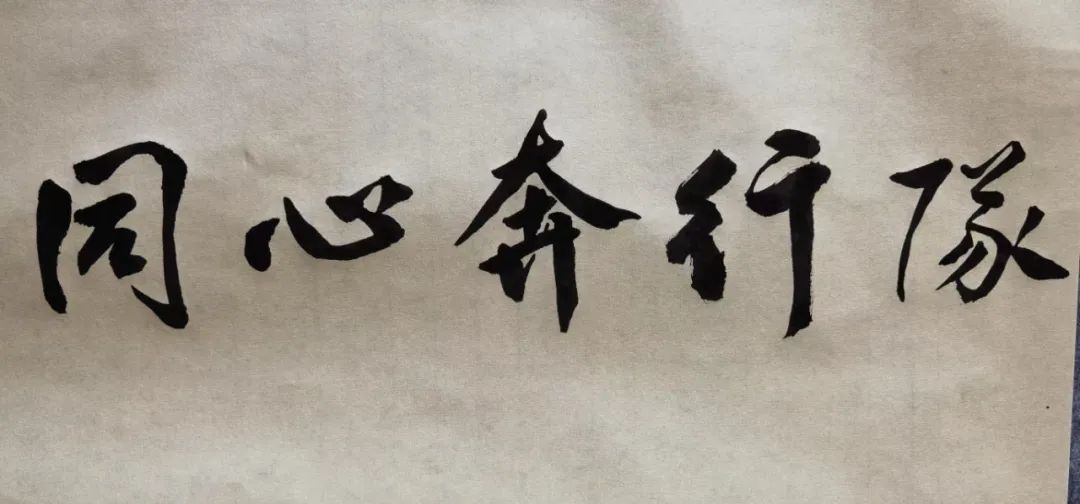 同心奔行隊